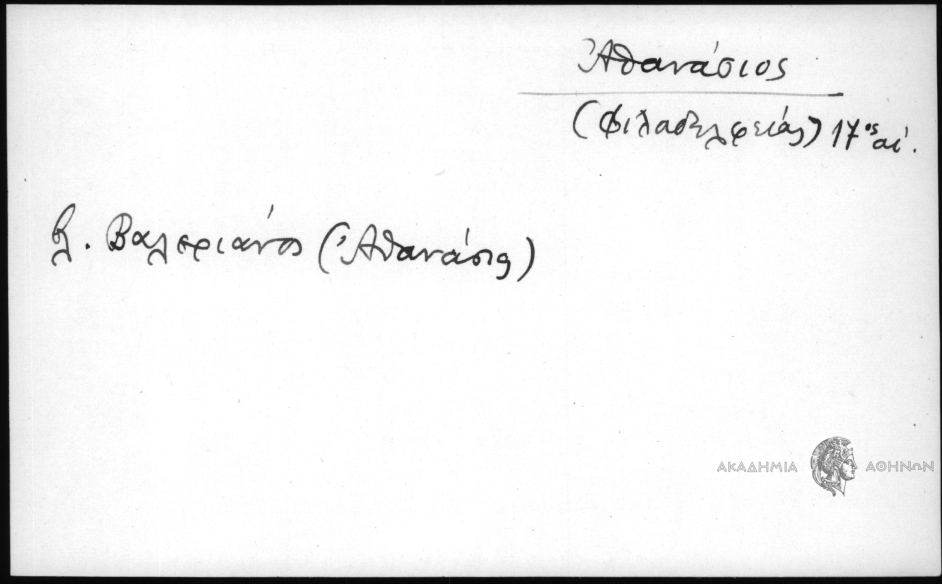 Ἀθανάσιος
(Φιλαδελφείας) 17ος αἰ.
βλ. Βαλεριάνος (Ἀθανάσιος)
ΑΚΑΔΗΜΙΑ ΑΘΗΝΩΝ